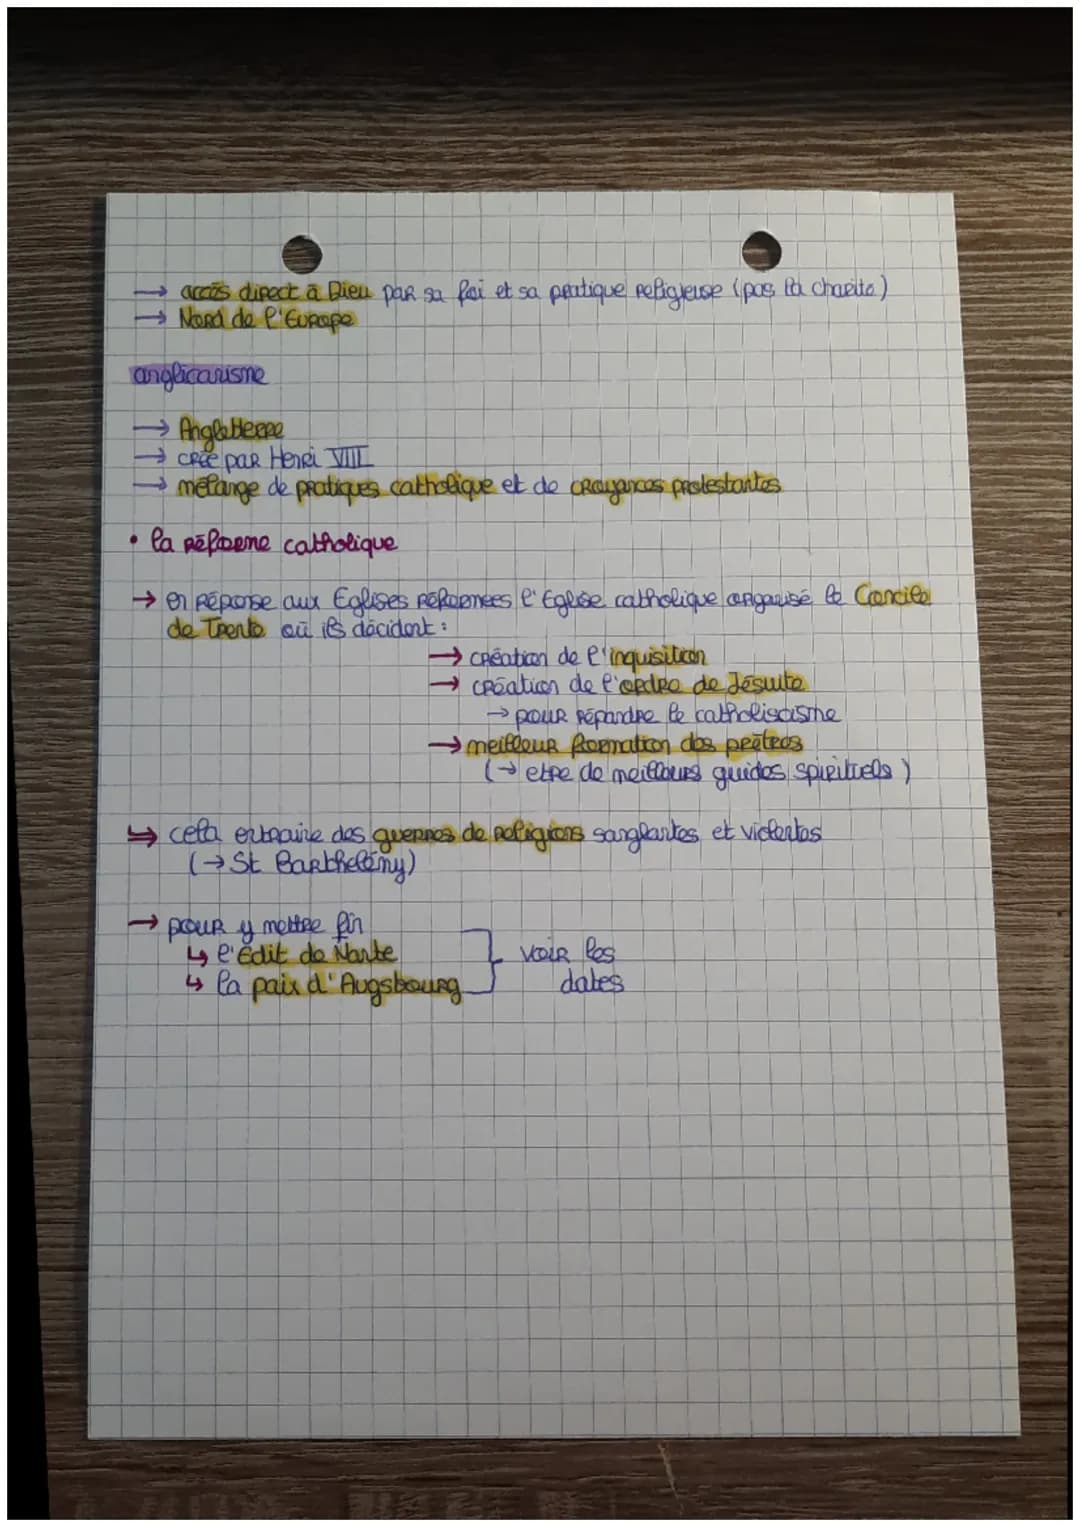 → accès direct à Dieu par sa foi et sa pratique religieuse (pas la charité)
→ Nord de l'Europe
anglicanisme
→ Angleterre
→ créé par Henri VIII
→ mélange de pratiques catholique et de croyances protestantes
• la réforme catholique
→ en réponse aux Eglises réformées l'Eglise catholique organise le Concile
de Trente où ils décident :
→ création de l'inquisition
→ création de l'ordre de Jésuite
→ pour répandre le catholiscisme
→ meilleur formation des prêtres
(→ etre de meilleurs guides spirituels)
↳ cela entraine des guerres de religions sanglantes et violentes
(→ St Barthélémy)
→ pour y mettre fin
↳ l'Edit de Nante
↳ la paix d'Augsbourg
voir les
dates